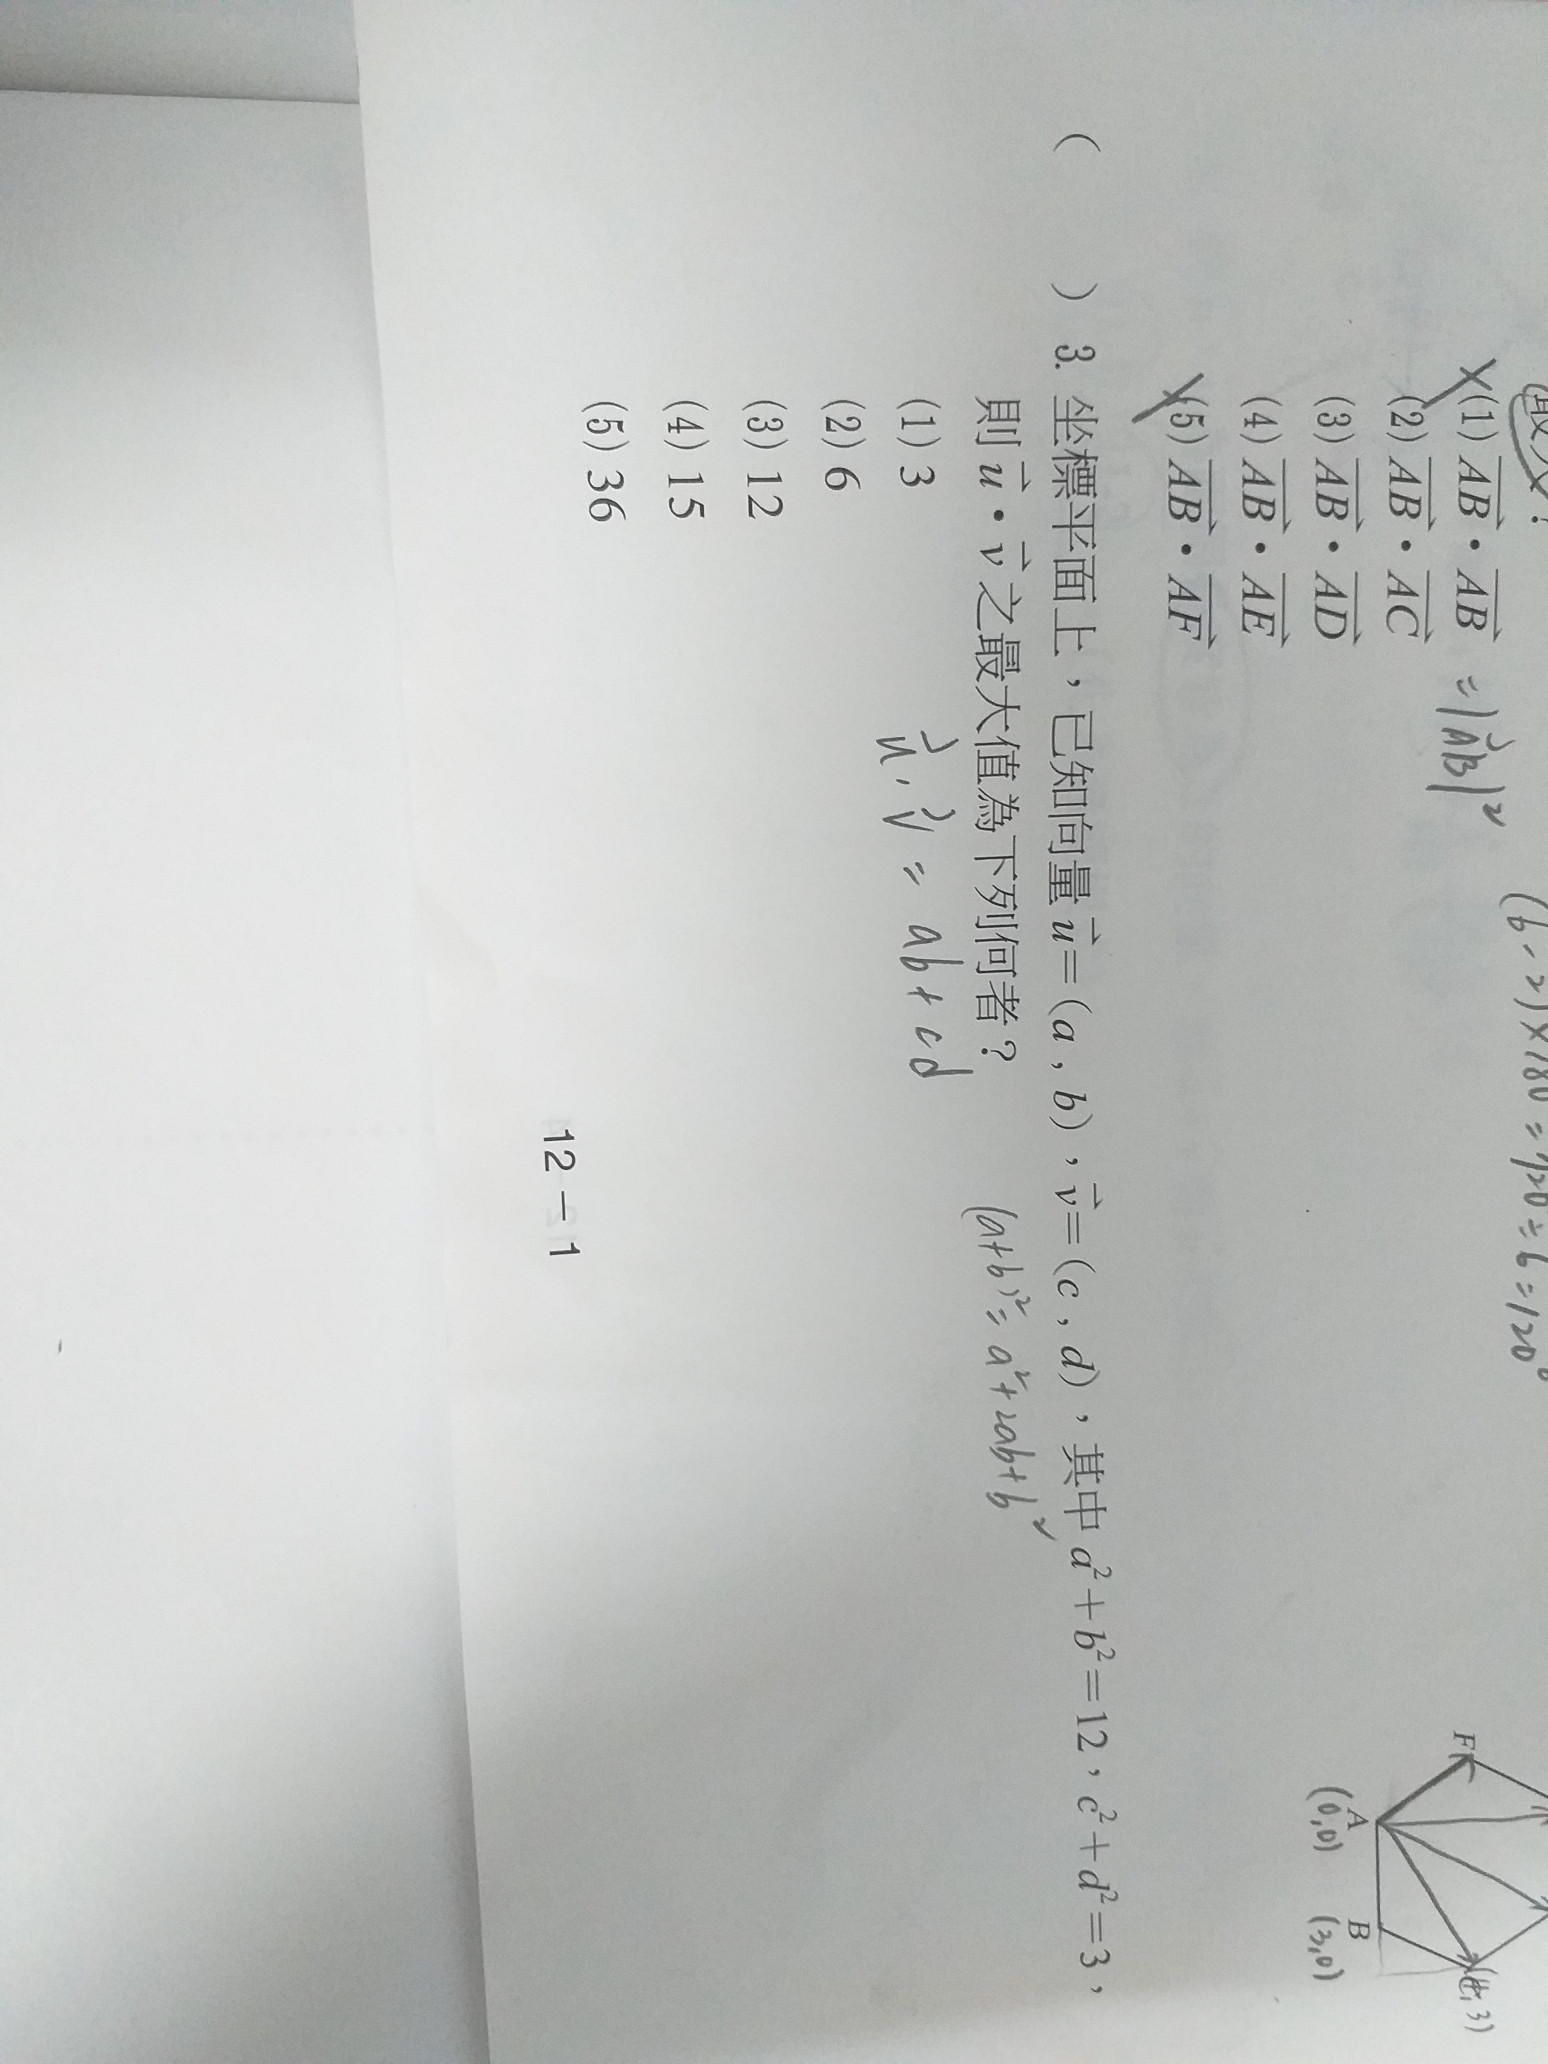 (1) AB · AB = |AB|²
(2) AB · AC
(3) AB · AD
(4) AB · AE
(5) AB · AF
(6-2)×180=720÷6=120°
F
A
(0,0)
B
(3,0)
( ) 3. 坐標平面上，已知向量u=(a, b)，v=(c, d)，其中a²+b²=12，c²+d²=3，
則u · v之最大值為下列何者？
(a+b)²=a²+2ab+b²
(1) 3
u · v = ab+cd
(2) 6
(3) 12
(4) 15
(5) 36
12－1